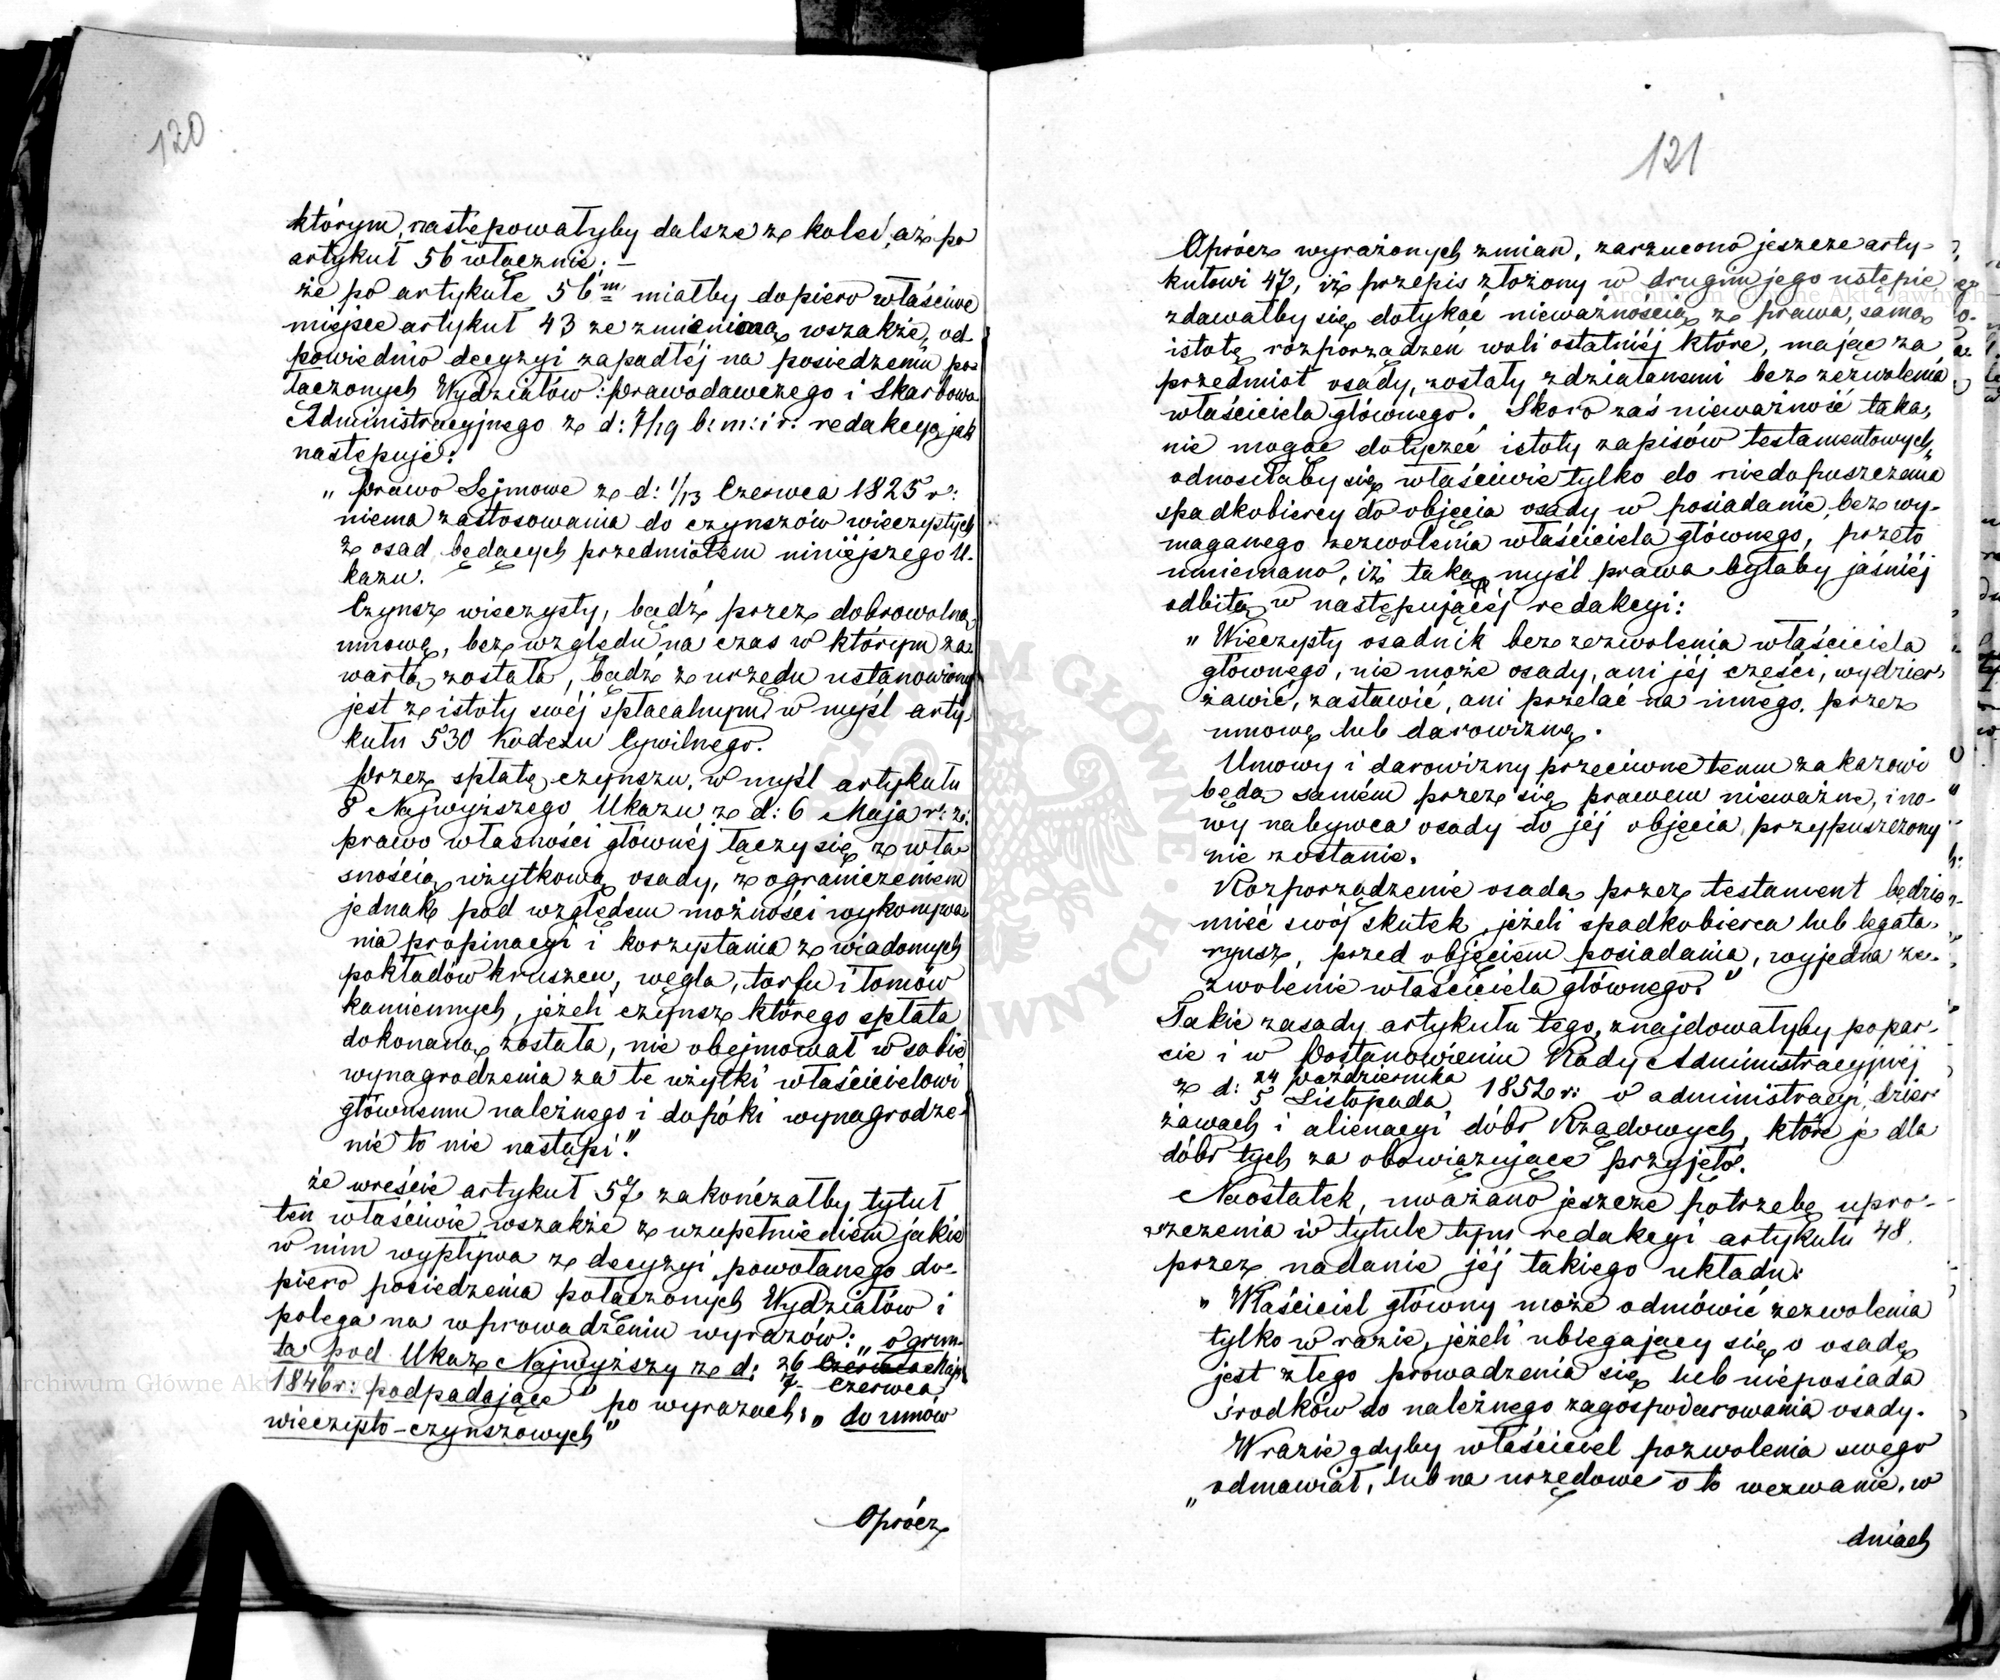 120
którym, następowałyby dalsze z kolei, aż po
artykuł 56 włącznie; –
że po artykule 56m miałby dopiero właściwe
miejsce artykuł 43 ze zmienioną wszakże, od-
powiednio decyzyi zapadłéj na posiedzeniu po-
łączonych Wydziałów: Prawodawczego i Skarbowo
Administracyjnego z d: 7/19 b: m: i r: redakcyą jak
następuje:
„Prawo Sejmowe z d: 1/13 Czerwca 1825 r:
niema zastosowania do czynszów wieczystych
z osad będących przedmiotem niniéjszego U-
kazu.
Czynsz wieczysty, bądź przez dobrowolną
umowę, bez względu na czas w którym za-
warta została, bądź z urzędu ustanowiony
jest z istoty swéj spłacalnym w myśl arty-
kułu 530 Kodexu Cywilnego.
Przez spłatę czynszu, w myśl artykułu
8 Najwyższego Ukazu z d: 6 Maja r: z:
prawo własności głównéj łączy się z wła-
snością użytkową osady, z ograniczeniem
jednak pod względem możności wykonywa-
nia propinacyi i korzystania z wiadomych
pokładów kruszcu, węgla, torfu i łomów
kamiennych, jeżeli czynsz którego spłata
dokonaną została, nie obejmował w sobie
wynagrodzenia za te użytki właścicielowi
głównemu należnego i dopóki wynagrodze-
nie to nie nastąpi."
że wreście artykuł 57 zakończałby tytuł
ten właściwie, wszakże z uzupełnieniem jakie
w nim wypływa z decyzyi powołanego do-
piero posiedzenia połączonych Wydziałów i
polega na wprowadzeniu wyrazów: „o grun-
ta pod Ukaz Najwyższy z d: 26 Czerwca Maja
7 Czerwca
1846 r: podpadające" po wyrazach: „do umów
wieczysto-czynszowych"
Oprócz
121
Oprócz wyrażonych zmian, zarzucono jeszcze arty-
kułowi 47, iż przepis złożony w drugim jego ustępie
zdawałby się dotykać nieważnością z prawa, samą
istotę rozporządzeń woli ostatniéj które, mając za
przedmiot osady, zostały zdziałanemi bez zezwolenia
właściciela głównego. Skoro zaś nieważność taka,
nie mogąc dotyczeć istoty zapisów testamentowych,
odnosiłaby się właściwie tylko do niedopuszczenia
spadkobiercy do objęcia osady w posiadanie, bez wy-
maganego zezwolenia właściciela głównego, przeto
mniemano, iż taka myśl prawa byłaby jaśniéj
odbitą w następującéj redakcyi:
„Wieczysty osadnik bez zezwolenia właściciela
głównego, nie może osady, ani jéj części, wydzier-
żawić, zastawić, ani przelać na innego, przez
umowę lub darowiznę.
Umowy i darowizny przeciwne temu zakazowi
będą samém przez się prawem nieważne, i no-
wy nabywca osady do jéj objęcia przypuszczony
nie zostanie.
Rozporządzenie osadą przez testament będzie
mieć swój skutek, jeżeli spadkobierca lub legata-
ryusz, przed objęciem posiadania, wyjedna ze-
zwolenie właściciela głównego."
Takie zasady artykułu tego, znajdowałyby popar-
cie i w Postanowieniu Rady Administracyjnéj
z d: 24 Października / 5 Listopada 1852 r: o administracyi, dzier-
żawach i alienacyi dóbr Rządowych, które je dla
dóbr tych za obowiązujące przyjęło.
Naostatek, uważano jeszcze potrzebę upro-
szczenia w tytule tym redakcyi artykułu 48.
przez nadanie jéj takiego układu:
„Właściciel główny może odmówić zezwolenia
tylko w razie, jeżeli ubiegający się o osadę
jest złego prowadzenia się lub nieposiada
środków do należnego zagospodarowania osady.
W razie gdyby właściciel pozwolenia swego
„odmawiał, lub na urzędowe o to wezwanie, w
dniach
Archiwum Główne Akt Dawnych